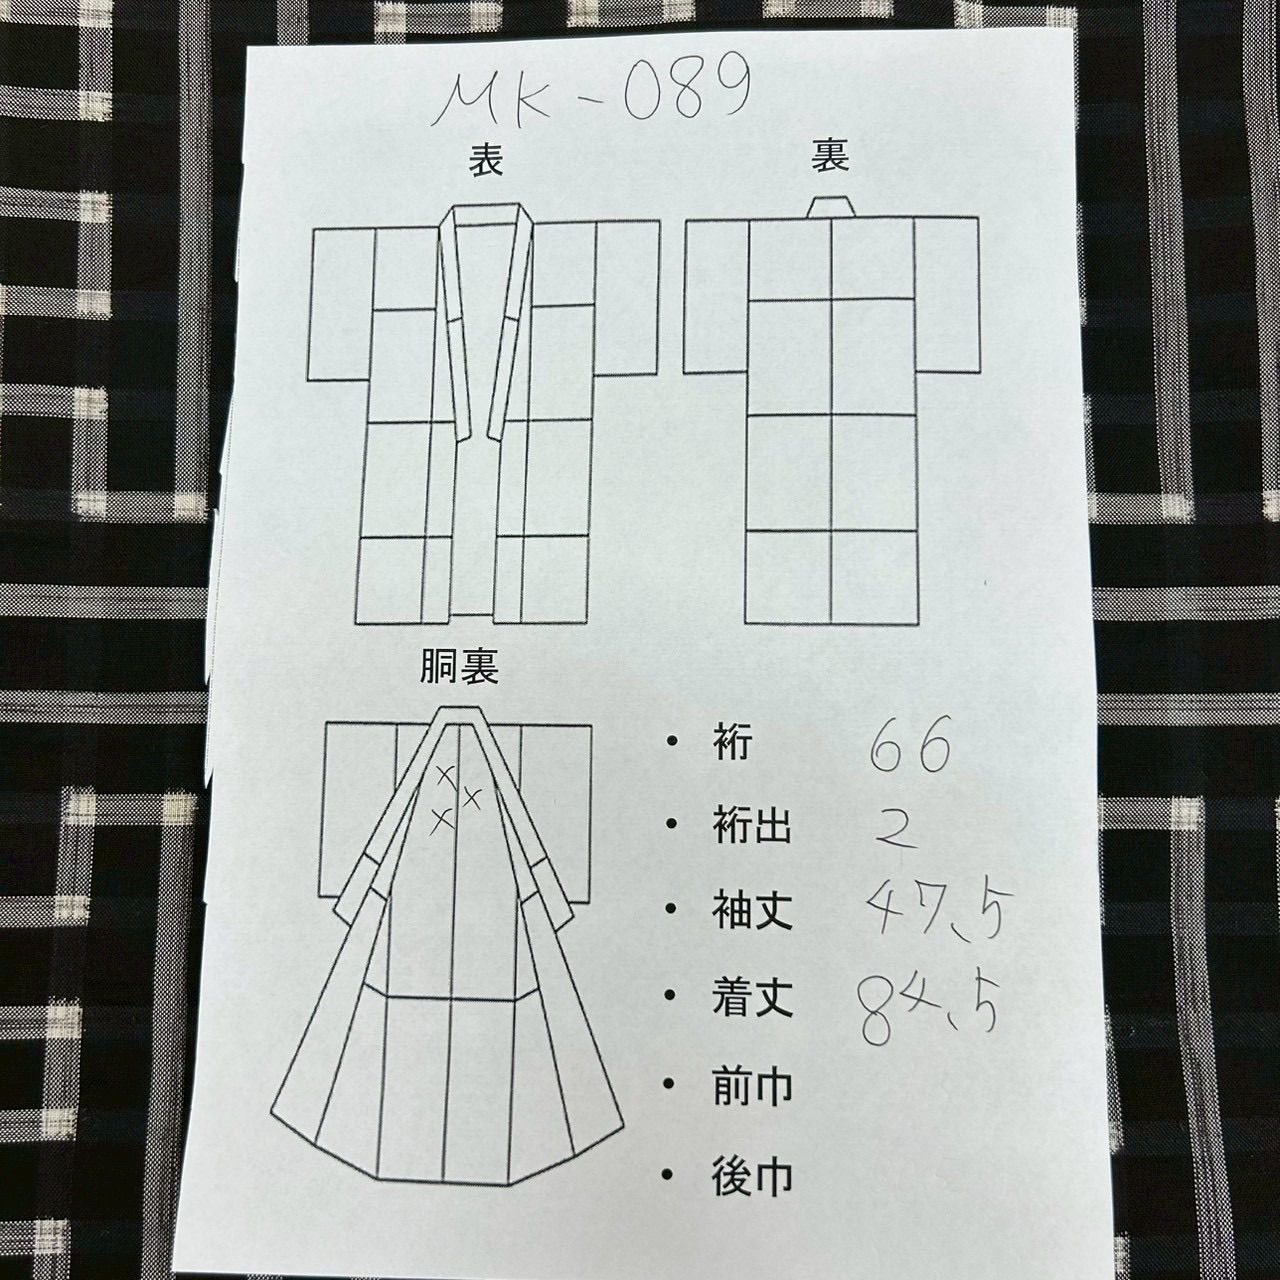 MK-089
表
裏
胴裏
・裄 66
・裄出 2
・袖丈 47.5
・着丈 84.5
・前巾
・後巾